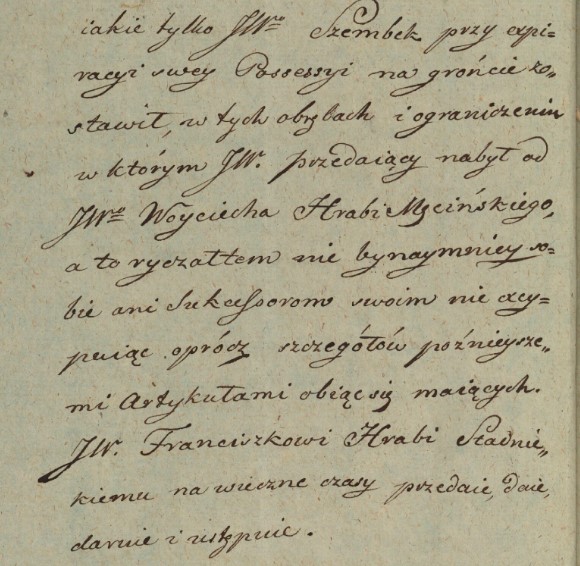 iakie tylko JWo Szembek przy expi-
racyi swey Possessyi na gróńcie zo-
stawił, w tych obrębach i ograniczeniu
w którym JW. przedaiący nabył od
JWo Woyciecha Hrabi Męcińskiego,
a to ryczałtem nie bynaymniey so-
bie ani Sukcessorom swoim nie excy-
puiąc oprócz szczegółów poźnieysze„
mi Artykułami obiąc się maiących.
JW. Franciszkowi Hrabi Stadnic„
kiemu na wieczne czasy przedaie, daie,
daruie i ustępuie.